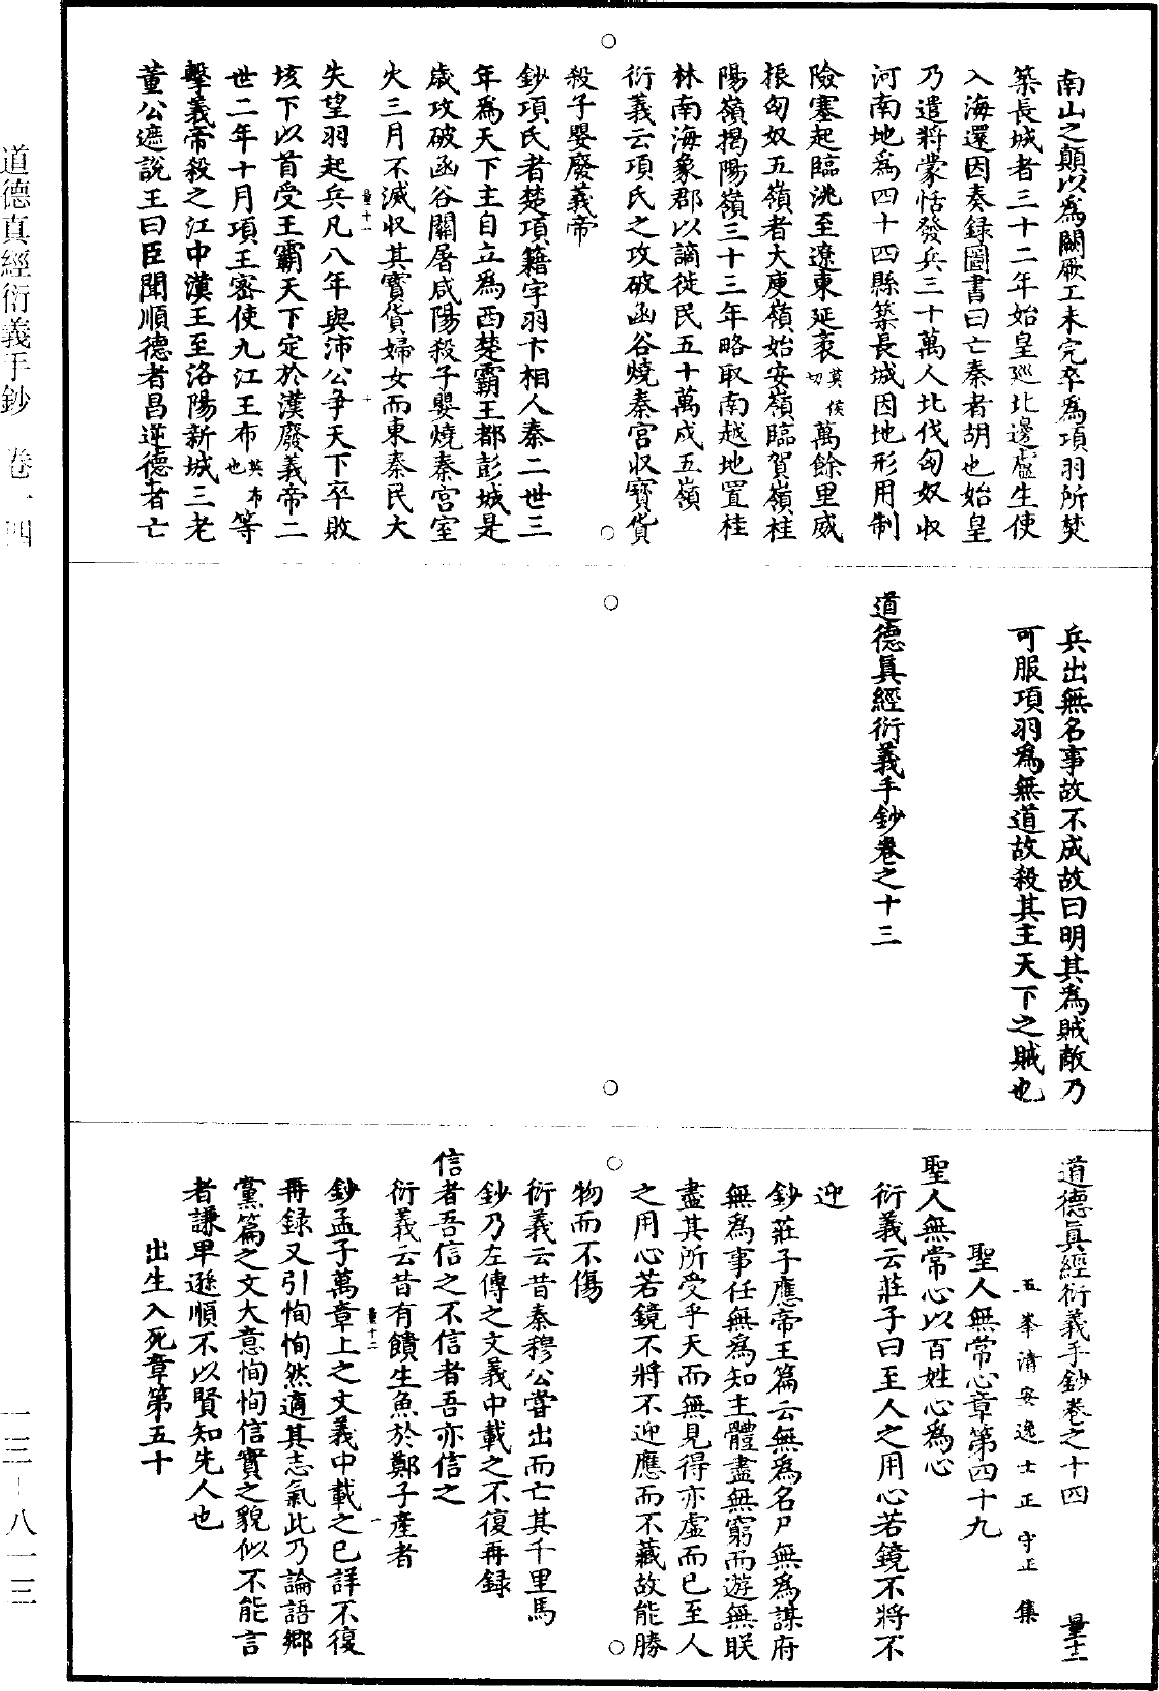 南山之顛以為闕厥工未完卒為項羽所焚
築長城者三十二年始皇巡北邊盧生使
入海還因奏録圖書曰亡秦者胡也始皇
乃遣將蒙恬發兵三十萬人北伐匈奴収
河南地為四十四縣築長城因地形用制
險塞起臨洮至遼東延袤莫侯切萬餘里威
振匈奴五嶺者大庾嶺始安嶺臨賀嶺桂
陽嶺揭陽嶺三十三年略取南越地置桂
林南海象郡以謫徙民五十萬戍五嶺
衍義云項氏之攻破函谷燒秦宮収寳貨
殺子嬰廢義帝
鈔項氏者楚項籍字羽下相人秦二世三
年為天下主自立為西楚霸王都彭城是
歳攻破函谷關屠咸陽殺子嬰燒秦宮室
火三月不滅収其寳貨婦女而東秦民大
失望羽起兵凡八年與沛公爭天下卒敗
量十一
垓下以首受王霸天下定於漢廢義帝二
世二年十月項王密使九江王布英布也等
擊義帝殺之江中漢王至洛陽新城三老
董公遮說王曰臣聞順德者昌逆德者亡
兵出無名事故不成故曰明其為賊敵乃
可服項羽為無道故殺其主天下之賊也
道德真經衍義手鈔卷之十三
道德真經衍義手鈔卷之十四
量十二
五峯清安逸士王守正集
聖人無常心章第四十九
聖人無常心以百姓心為心
衍義云莊子曰至人之用心若鏡不將不
迎
鈔莊子應帝王篇云無為名尸無為謀府
無為事任無為知主體盡無窮而遊無朕
盡其所受乎天而無見得亦虛而已至人
之用心若鏡不將不迎應而不藏故能勝
物而不傷
衍義云昔秦穆公嘗出而亡其千里馬
鈔乃左傳之文義中載之不復再録
信者吾信之不信者吾亦信之
衍義云昔有饋生魚於鄭子產者
量十二
一
鈔孟子萬章上之文義中載之已詳不復
再録又引恂恂然適其志氣此乃論語鄉
黨篇之文大意恂恂信實之貌似不能言
者謙卑遜順不以賢知先人也
出生入死章第五十
道德真經衍義手鈔 卷一四
一三－八一三